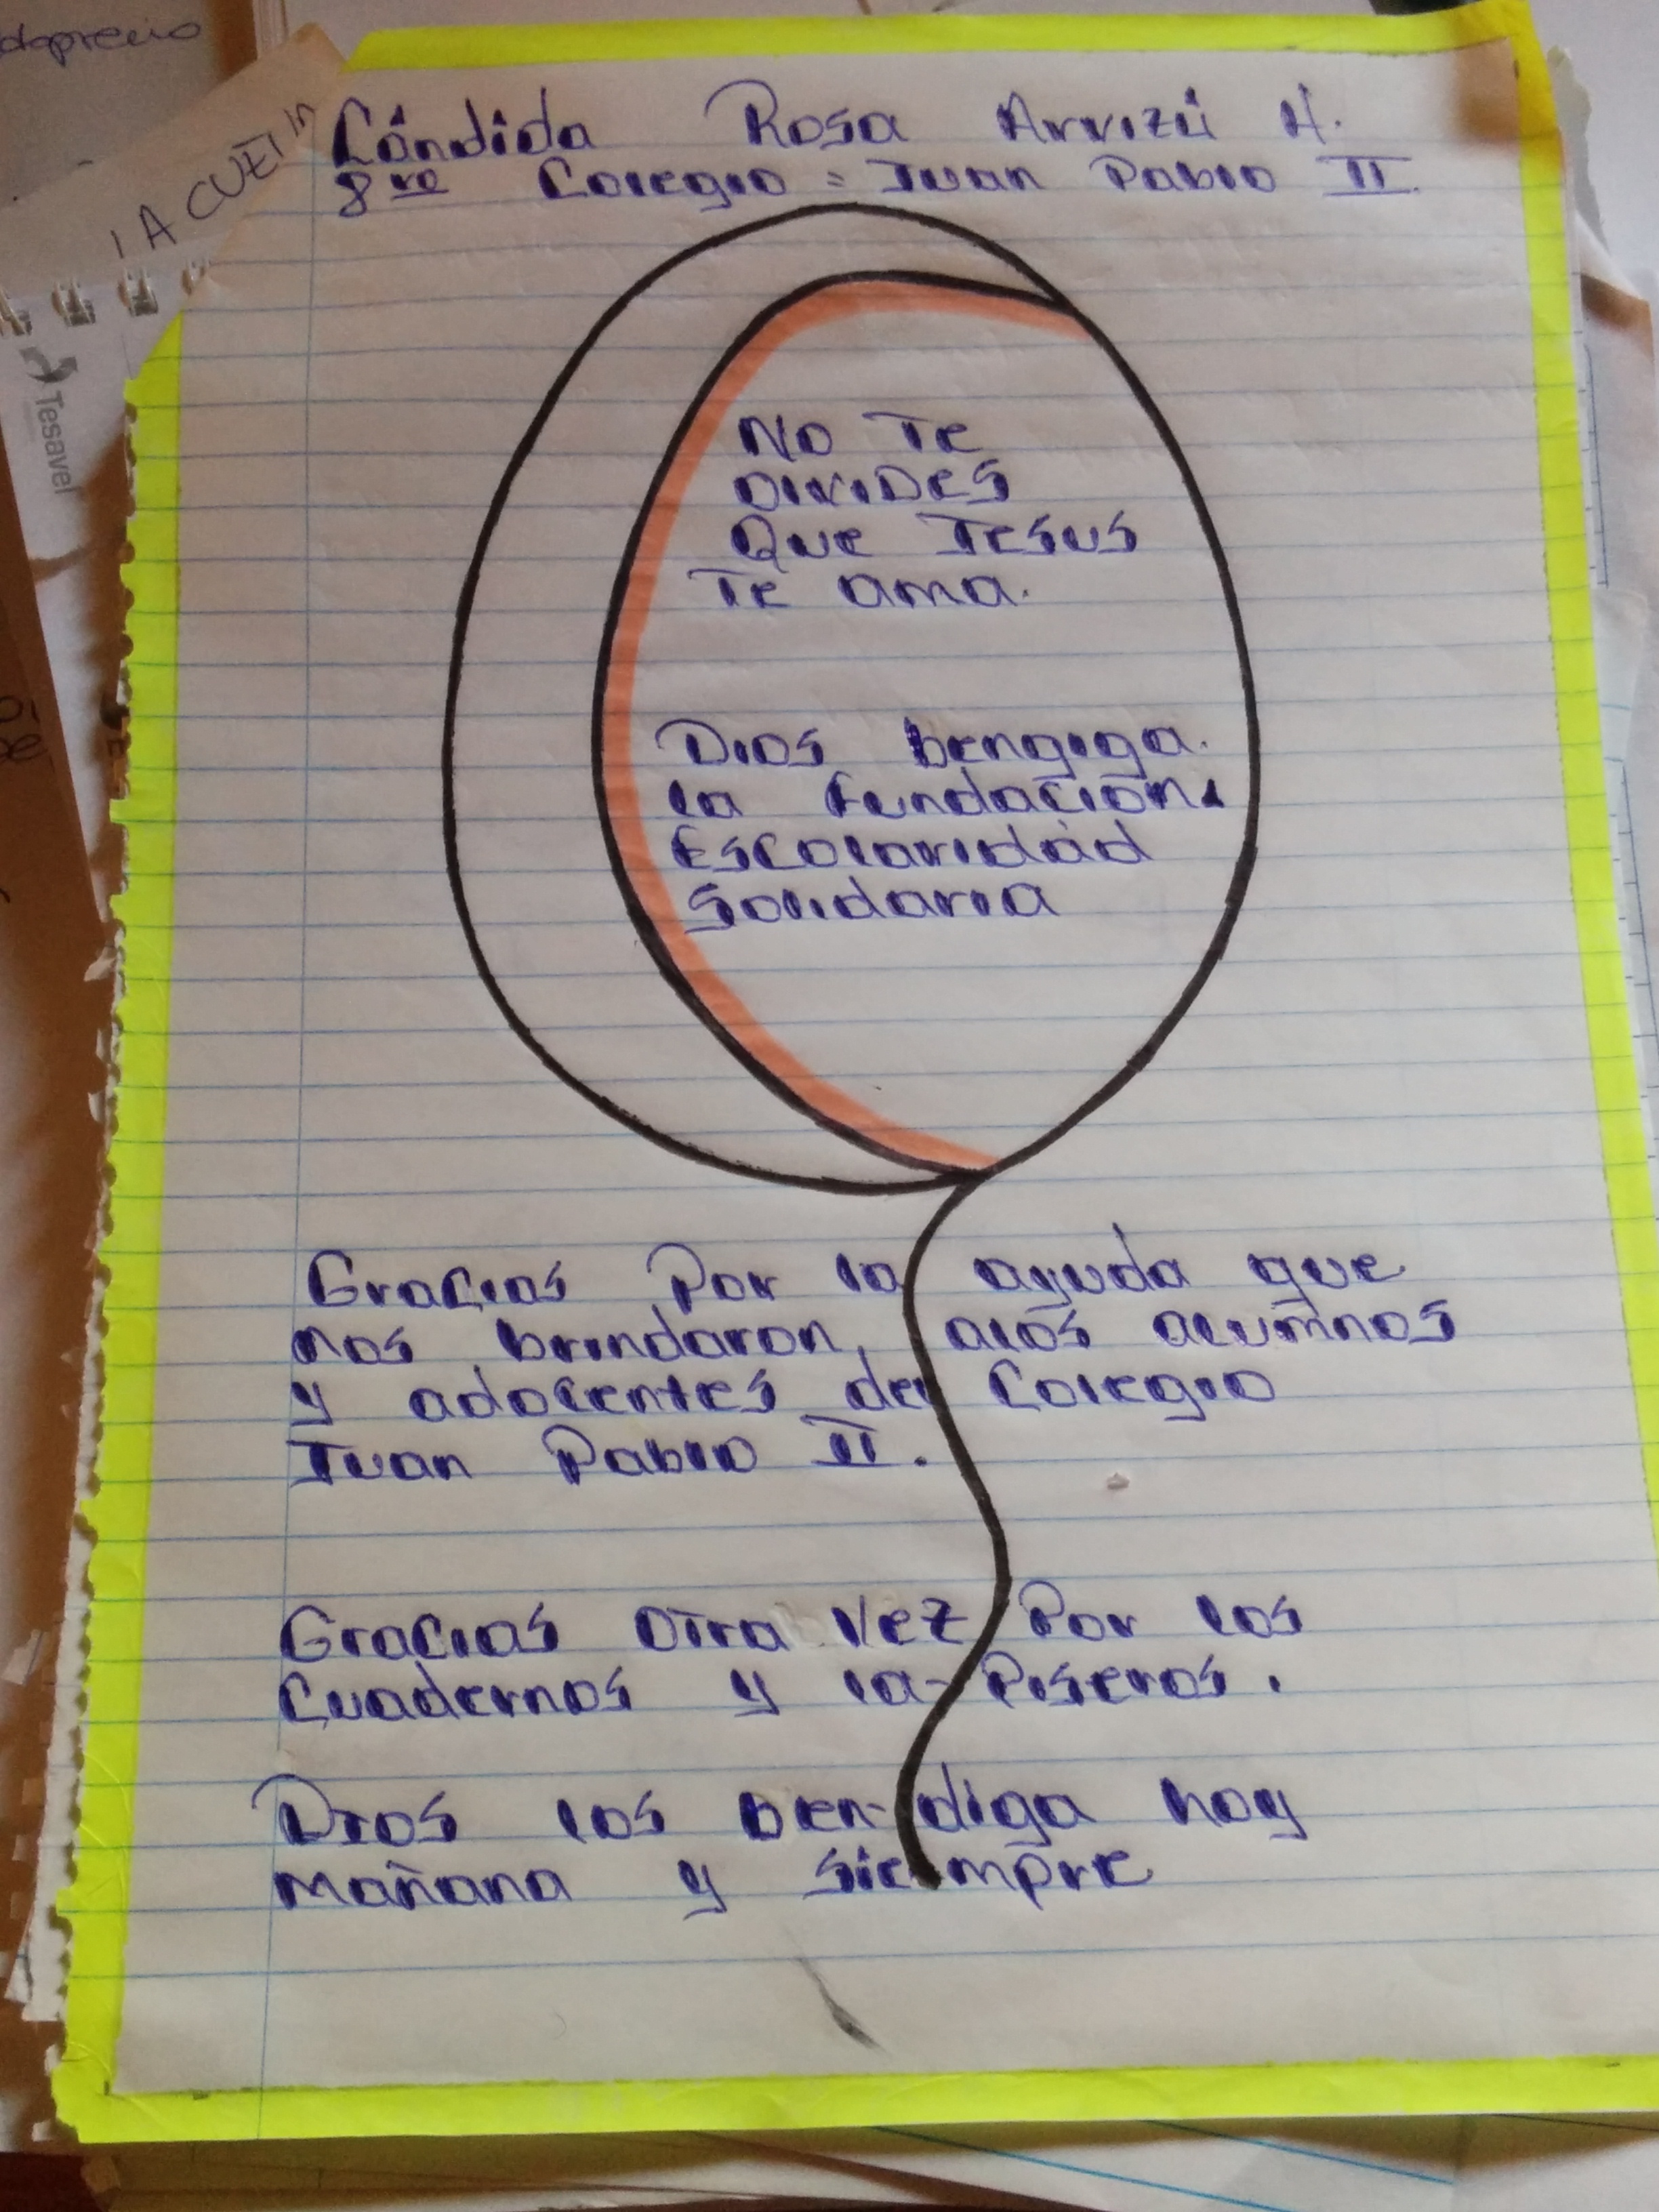 doprecio
LA CUEIN
Tesavel
Cándida Rosa Arvizú H.
8vo Colegio = Juan Pablo II.
No Te
OlviDes
Que Jesus
Te ama.
Dios bengiga.
la fundación.
Escolaridad
Solidaria
Gracias Por la ayuda que
nos brindaron, alos alumnos
y adocentes del Colegio
Juan Pablo II.
Gracias Otra Vez Por los
Cuadernos y la-Piseros.
Dios los ben-diga hoy
mañana y siempre